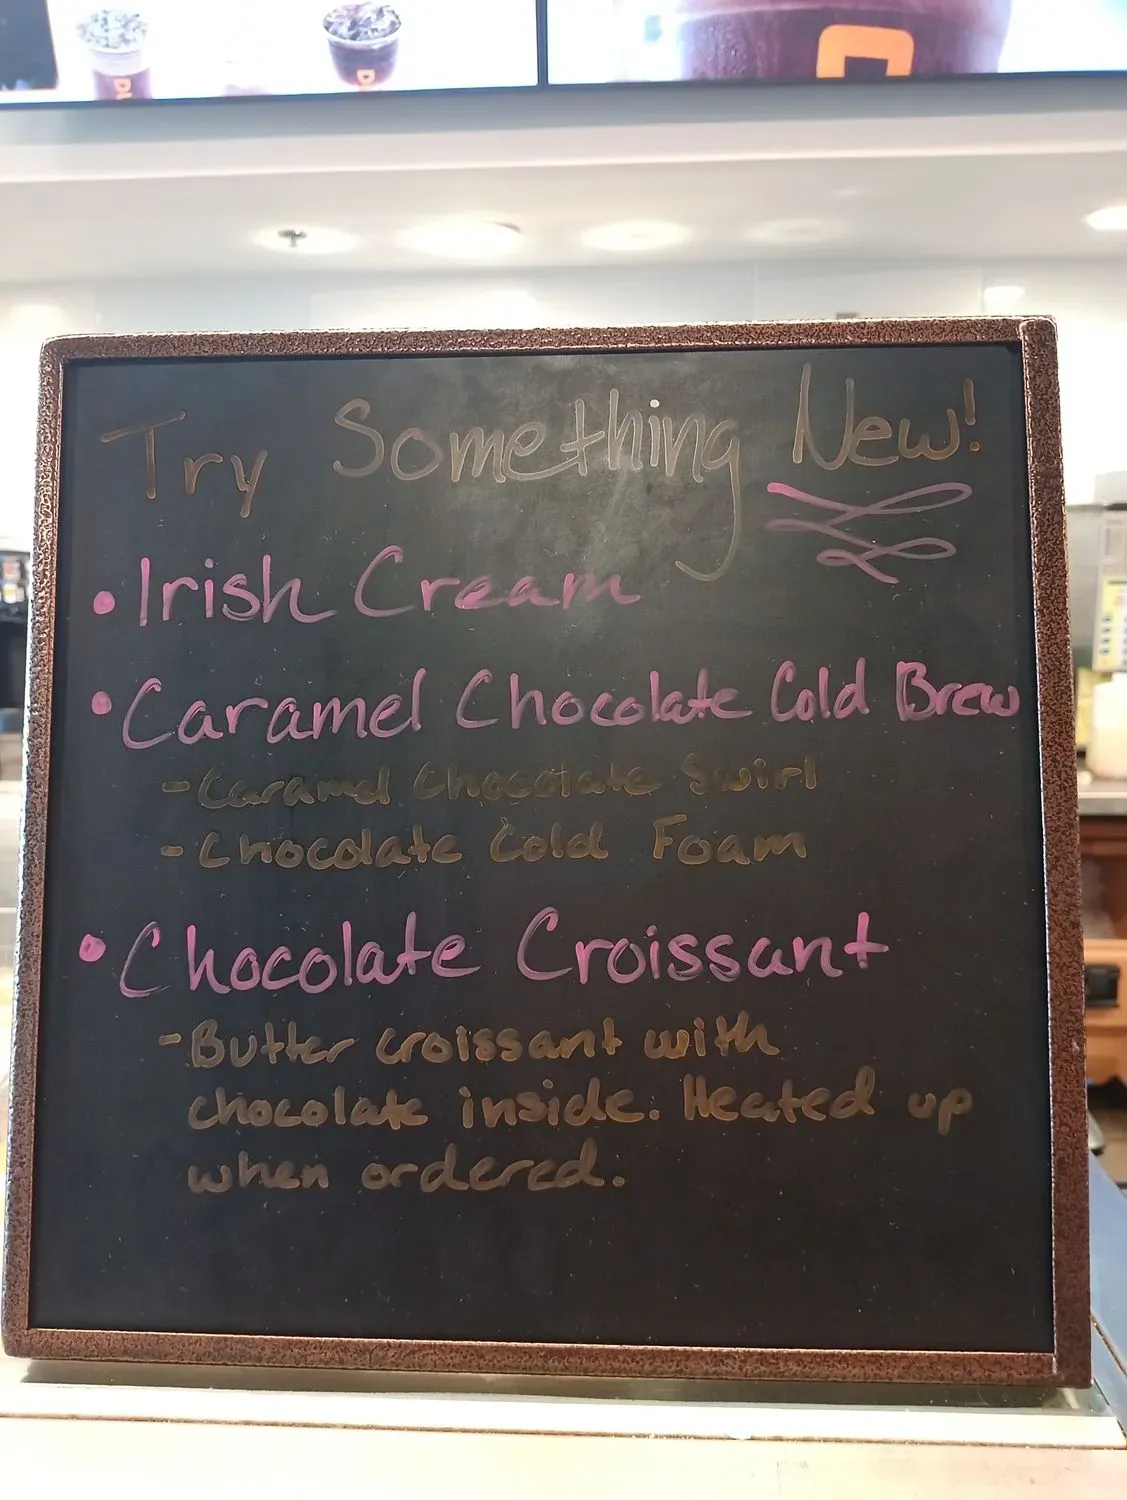 Try Something New!
• Irish Cream
• Caramel Chocolate Cold Brew
- Caramel Chocolate Swirl
- Chocolate Cold Foam
• Chocolate Croissant
- Butter croissant with
chocolate inside. Heated up
when ordered.